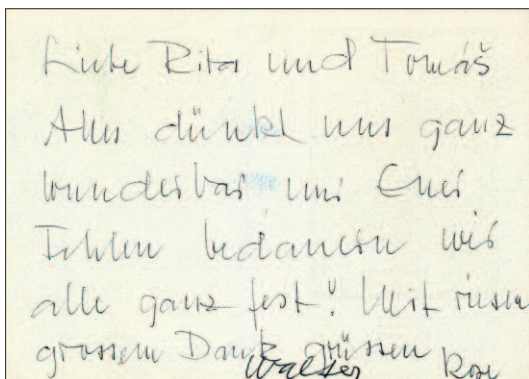 Liebe Rita und Tomáš
Alles dünkt uns ganz
wunderbar nur Euer
Fehlen bedauern wir
alle ganz fest! Mit riesen
grossem Dank grüssen
Walter Rose